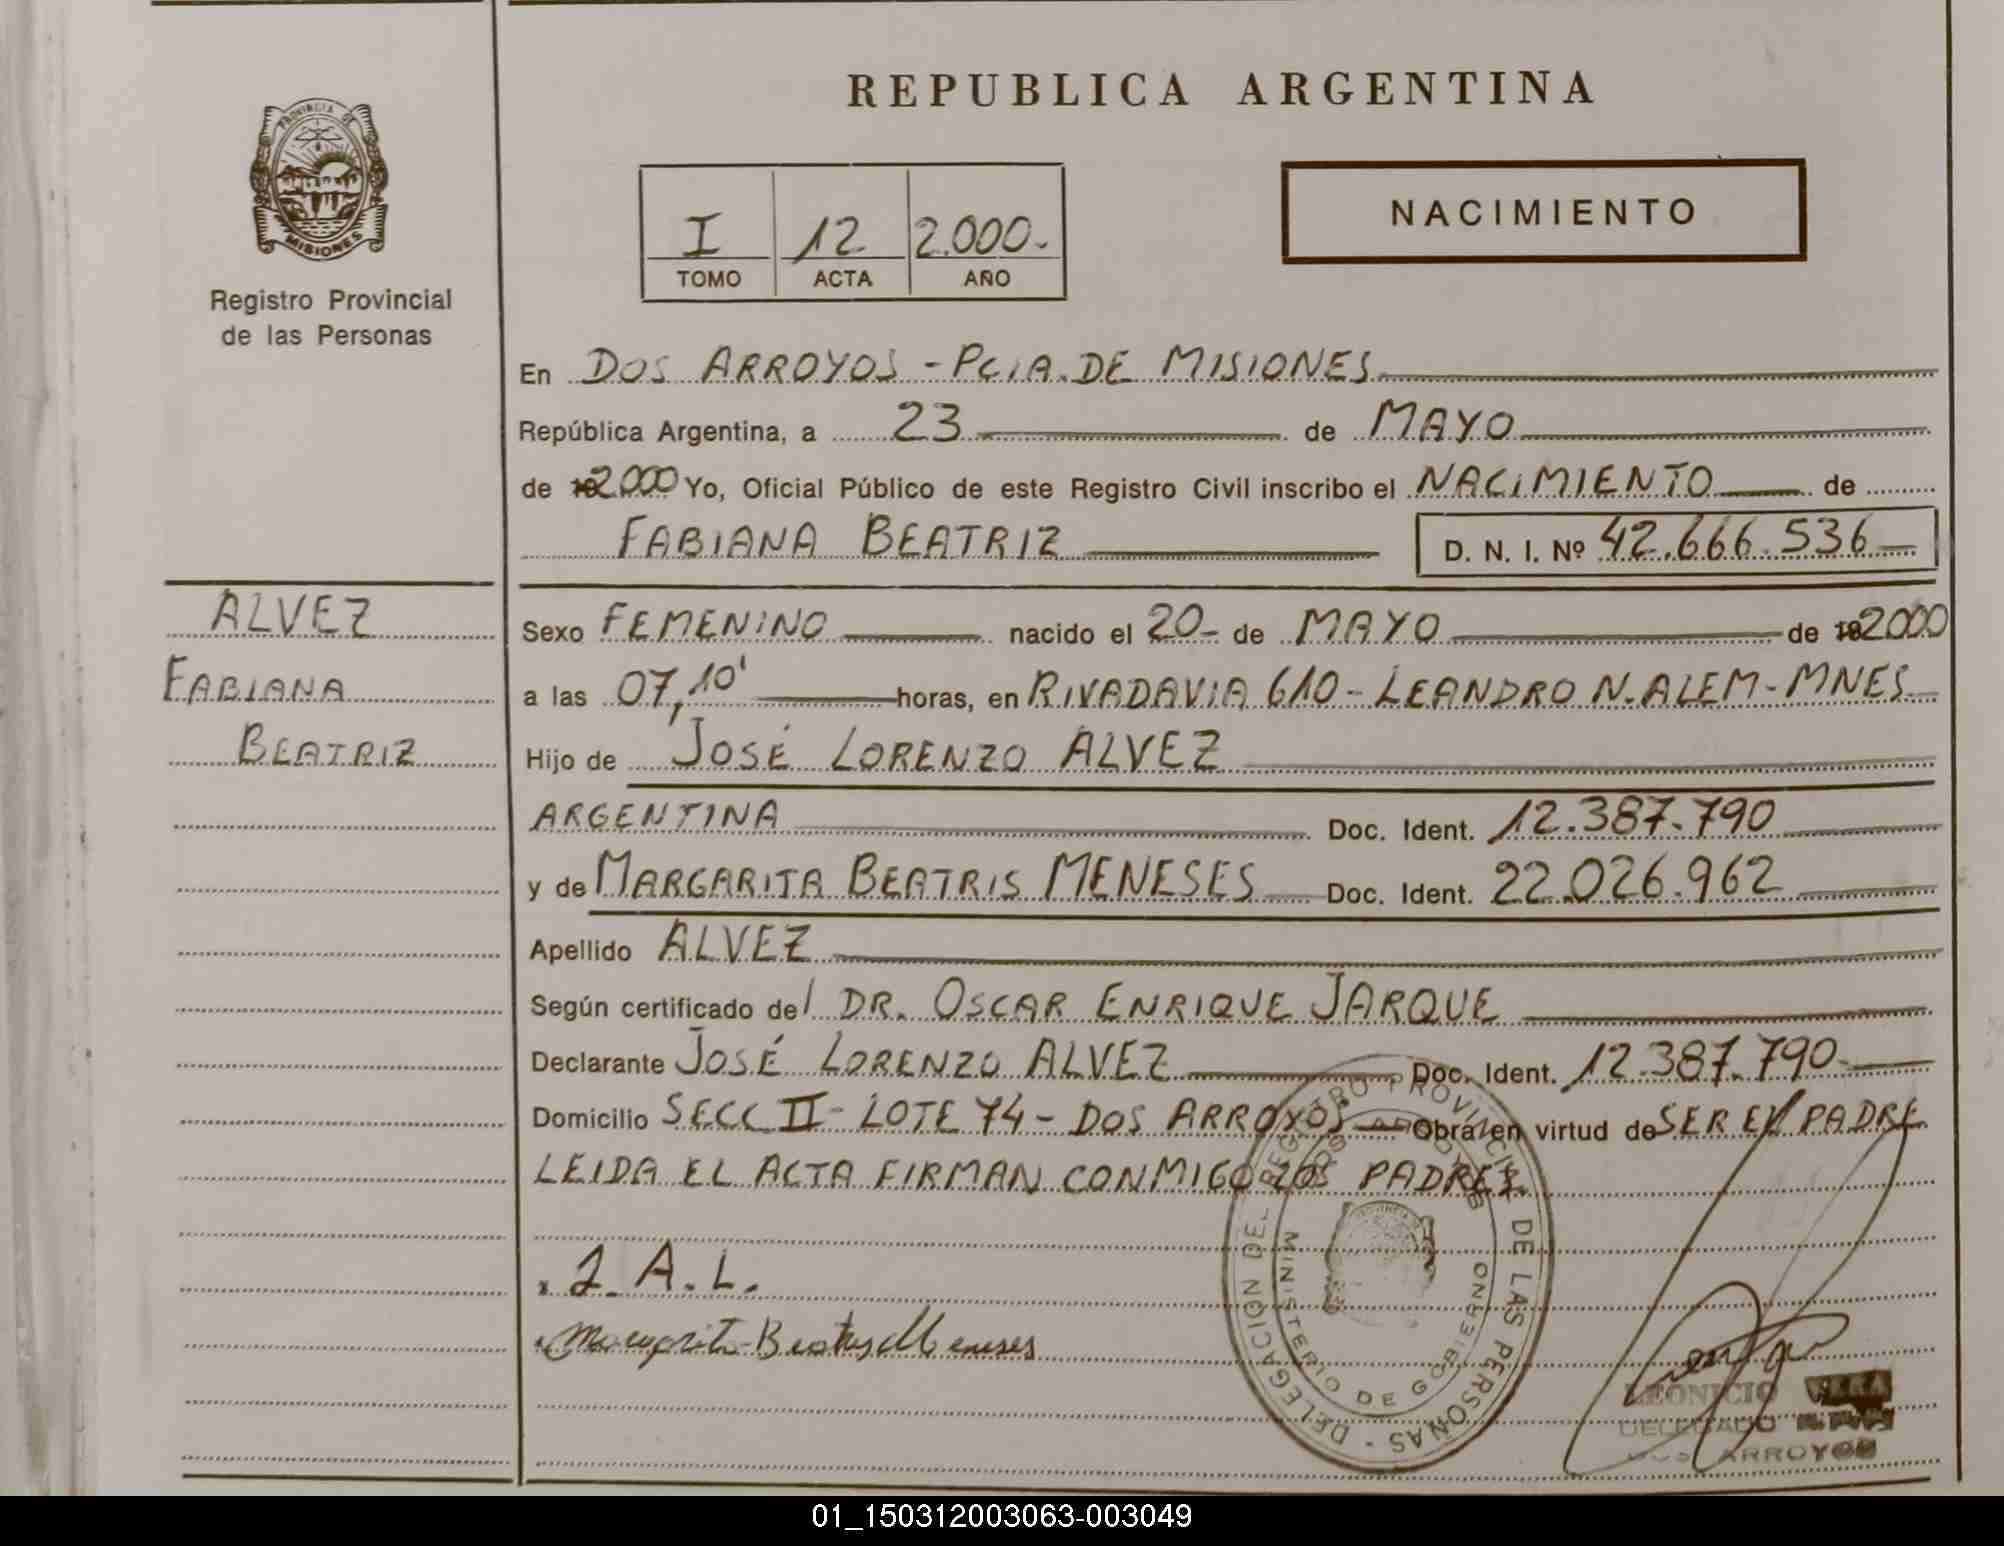 REPUBLICA ARGENTINA
PROVINCIA DE
MISIONES
Registro Provincial
de las Personas
NACIMIENTO
I 12 2.000-
TOMO ACTA AÑO
En DOS ARROYOS - PCIA. DE MISIONES
República Argentina, a 23 de MAYO
de 2000 Yo, Oficial Público de este Registro Civil inscribo el NACIMIENTO de
FABIANA BEATRIZ D. N. I. Nº 42.666.536
ALVEZ
FABIANA
BEATRIZ
Sexo FEMENINO nacido el 20- de MAYO de 2000
a las 07,10' horas, en RIVADAVIA 610 - LEANDRO N. ALEM - MNES
Hijo de JOSÉ LORENZO ALVEZ
ARGENTINA Doc. Ident. 12.387.790
y de MARGARITA BEATRIS MENESES Doc. Ident. 22.026.962
Apellido ALVEZ
Según certificado del DR. OSCAR ENRIQUE JARQUE
Declarante JOSÉ LORENZO ALVEZ Doc. Ident. 12.387.790
Domicilio SECC II - LOTE 74 - DOS ARROYOS Obra en virtud de SER EL PADRE
LEIDA EL ACTA FIRMAN CONMIGO LOS PADRES.
A. L.
Margarita Beatris Meneses
DELEGACION DEL REGISTRO PROVINCIAL DE LAS PERSONAS -
DOS ARROYOS
MINISTERIO DE GOBIERNO
LEONICIO VERA
DELEGADO
DOS ARROYOS
01_150312003063-003049